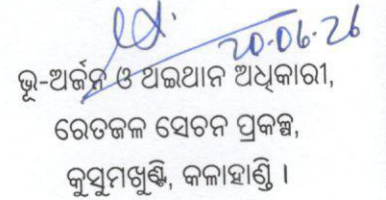 20.06.26
ଭୂ-ଅର୍ଜନ ଓ ଥଇଥାନ ଅଧିକାରୀ,
ରେତଜଳ ସେଚନ ପ୍ରକଳ୍ପ,
କୁସୁମଖୁଣ୍ଟି, କଳାହାଣ୍ଡି ।